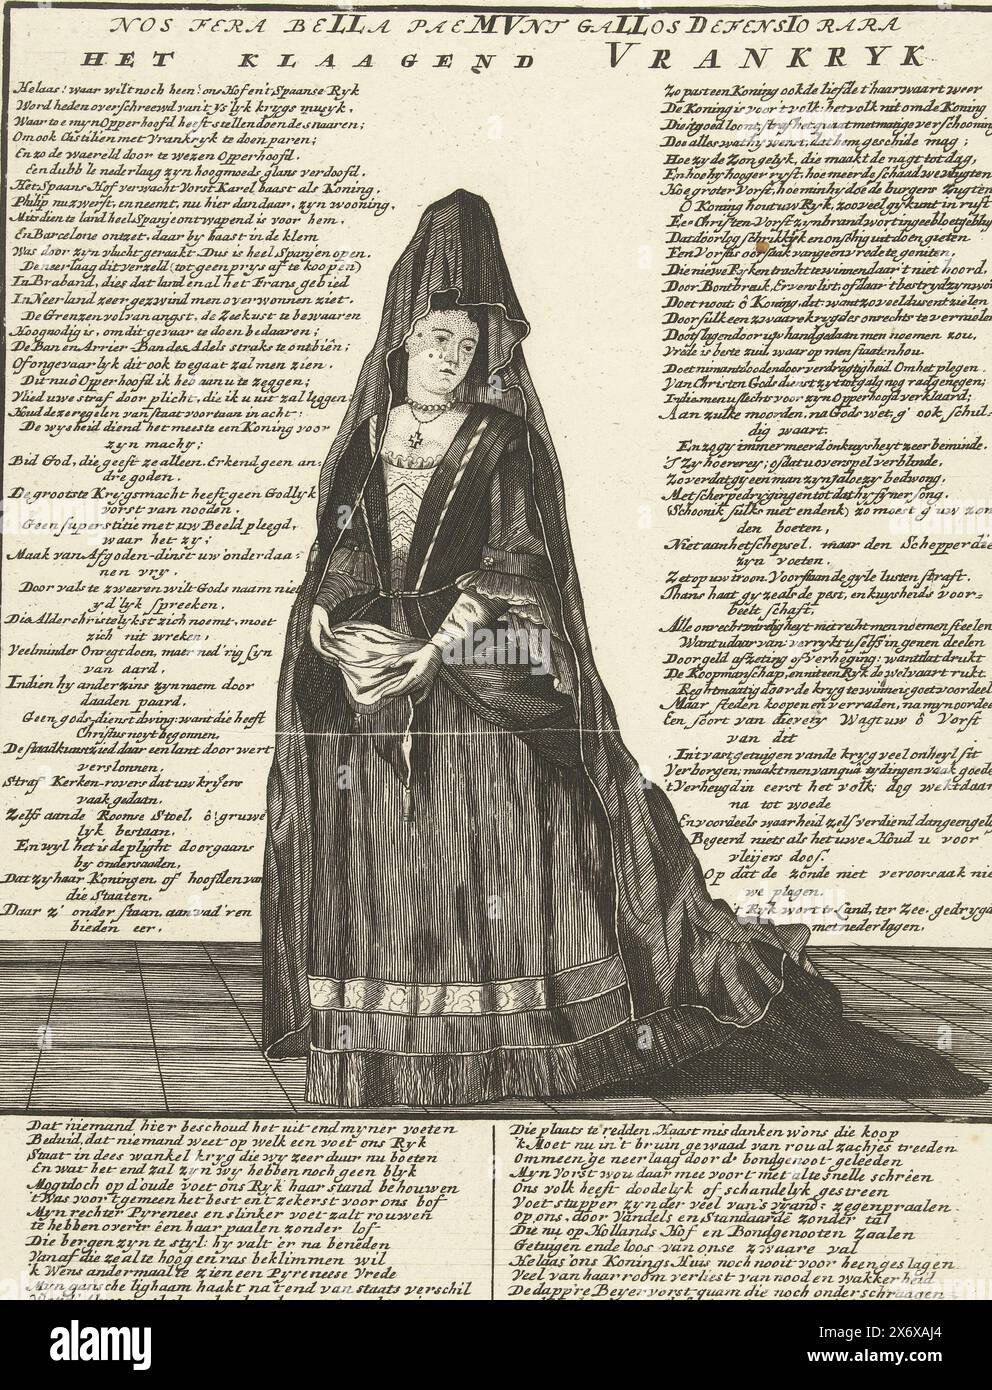 NOS FERA BELLA PAEMVNT GALLOS DEFENSIO RARA
HET KLAAGEND VRANKRYK
Helaas! waar wilt noch heen! ons Hof en't Spaanse Ryk
Word heden overschreewd van't Ys'lyk krygs musyk.
Waar toe myn Opperhoofd heeft stellen doen de snaaren;
Om ook Castilien met Vrankryk te doen paren;
En zo de waereld door te wezen Opperhoofd.
Een dubb'le nederlaag zyn hoogmoeds glans verdoofd.
Het Spaans Hof verwacht Vorst Karel haast als Koning,
Philip nu zwerft, en neemt, nu hier dan daar, zyn wooning,
Mits dien te land heel Spanje ontwapend is voor hem.
En Barcelone ontzet, daar by haast in de klem
Was door zyn vlucht geraakt. Dus is heel Spanje open.
De neerlaag dit verzeld (tot geen prys af te koopen)
In Braband, dies dat land en al het Frans gebied
In Neerland zeer gezwind men overwonnen ziet.
De Grenzen vol van angst, de Zeekust te bewaaren
Hoognodig is, om dit gevaar te doen bedaaren;
De Ban en Arrier-Ban des Adels straks te ontbiên;
Of ongevaarlyk dit ook toegaat zal men zien.
Dit nu ô Opperhoofd ik heb aan u te zeggen;
Vlied uwe straf door plicht, die ik u uit zal leggen
Houd deze regelen van staat voortaan in acht:
De wysheid diend het meeste een Koning voor
zyn macht;
Bid God, die geeft ze alleen. Erkend geen an-
dre goden.
De grootste Krygsmacht heeft geen Godlyk
vorst van nooden.
Geen superstitie met uw Beeld pleegd,
waar het zy;
Maak van Afgoden-dinst uw' onderdaa-
nen vry.
Door vals te zweeren wilt Gods naam niet
yd'lyk spreeken.
Die Alderchristelykst zich noemt, moet
zich nit wreken,
Veel minder Onregt doen, maer ned'rig syn
van aard.
Indien hy anderzins zyn naem door
daaden paard.
Geen gods-dienst dwing: want die heeft
Christus noyt begonnen.
De staadkunst zied daar een lant door wert
verslonnen.
Straf Kerken-rovers dat uw kryers
vaak gedaan.
Zelfs aan de Roomse Stoel, ô! gruwe
lyk bestaan.
En wyl het is de plight doorgaans
by ondersaaden,
Dat zy haar Koningen of hoofden van
die Staaten.
Daar z' onder staan, aan vad'ren
bieden eer.
Zo past een Koning ook de liefde t'haarwaart weer
De Koning is voor't volk: het volk nit om de Koning
Die't goed loont, straf het quaat met matige verschooning
Doe alles wat hy wenst, dat hem geschide mag;
Hoe zy de Zon gelyk, die maakt de nagt tot dag,
En hoe hy hoger ryst, hoe meer de schaad'we
Hoe groter Vorst, hoe min hy doe de burgers zugten
O Koning hout uw Ryk, zoo veel gy kunt in rust
Een Christen Vorst zyn brand wort in geen bloet geblust
Dat d'oorlog schrikk'lyk en onschig uit doen gieten
Een Vorst is oorsaak van geen vrede te geniten,
Die niewe Ryken tracht te winnen daar't niet hoord.
Door Bontbreuk, Ervens list, of daar't bestryd zyn
Doet noot, ô Koning, dit: want zoo veel dusent zielen
Door sulk een zwaare kryg des onrechts te vernielen
Doot slagen door uw hand gedaan men noemen zou.
Vrede is beste zuil, waar op men staaten hou.
Doet nimant dooden door verdragtigheid. Om het plegen
Van Christen Gods dienst zyt tot galg nog rad genegen;
Indie men u slechts voor zyn Opperhoofd verklaard;
Aan zulke moorden, na Gods wet, g' ook schul-
dig waart.
En zo gy immermeer d'onkuysheyt zeer beminde.
'T Zy hoererey; of dat u overspel verblinde.
Zo verdat gy een man zyn Jaloezy bedwong,
Met scherpe drygingen tot dat hy fyner song.
(Schoon ik sulks niet en denk) zo moest g' uw zon
den boeten,
Niet aan het schepsel, maar den Schepper die
zyn voeten.
Zet op uw troon. Voorstaan de gyle lusten straft.
Thans haat gy ze als de pest, en kuysheids voor-
beelt schaft,
Alle onrechtvaardigheyt met recht men noemen steelen
Want u daar van, verrykt u selfs in genen deelen
Door geld afzeting of verheging: want dat drukt
De Koopmanschap, en nit een Ryk de welvaart rukt.
Regtmaatig door de kryg te winnen is goet voordeel
Maar steden koopen en verraden, na myn oordeel
Een soort van dievery Wagt uw ô Vorst
van dit
In't vast getuigen van de kryg veel onheyl sit
Verborgen; maakt men van qua tydingen vaak goede
't Verheugd in eerst het volk; dog wekt daar
na tot woede
En voordeels waarheid zelf verdiend dan geen
Begeerd niets als het uwe. Houd u voor
vleijers doof.
Op dat de zonde niet veroorsaak nie
we plagen.
't Ryk wort te Land, ter Zee gedrygd
met nederlagen.
Dat niemand hier beschoud het uitend myner voeten
Beduid, dat niemand weet op welk een voet ons Ryk
Staat in dees wankel kryg die wy zeer duur nu boeten
En wat het end zal zyn wy hebben noch geen blyk
Mogt doch op d'oude voet ons Ryk haar stand behouwen
't Was voor't gemeen het best en't zekerst voor ons hof
Myn rechter Pyrenees en slinker voet zalt rouwen
te hebben overtr'êen haar paalen zonder lof
Die bergen zyn te styl: hy valt 'er na beneden
Van af die ze al te hoog en ras beklimmen wil
'k Wens andermaal te zien een Pyreneese Vrede
Myn gansche lighaam haakt na't end van staats verschil
Die plaats te redden. Haast mis danken w'ons die koop
'k Moet nu in't bruin gewaad van rou al zachjes treeden
Om meen'ge neerlaag door d' bondgenoot geleeden
Myn Vorst wou daar mee voort met al te snelle schrêen
Ons volk heeft doodelyk of schandelyk gestreen
Voet stupper zyn der veel van's vyand: zegenpraalen.
Op ons, door Vandels en Standaarde zonder tal
Die nu op Hollands Hof en Bondgenooten Zaalen
Getuigen endeloos van onse zwaare val
Helaas ons Konings Huis noch nooit voor heen geslagen
Veel van haar room verliest van nood en wakkerheid
De dapp're Beyervorst quam die noch onderschraagen
alamy
Image ID: 2X6XAJ4
www.alamy.com